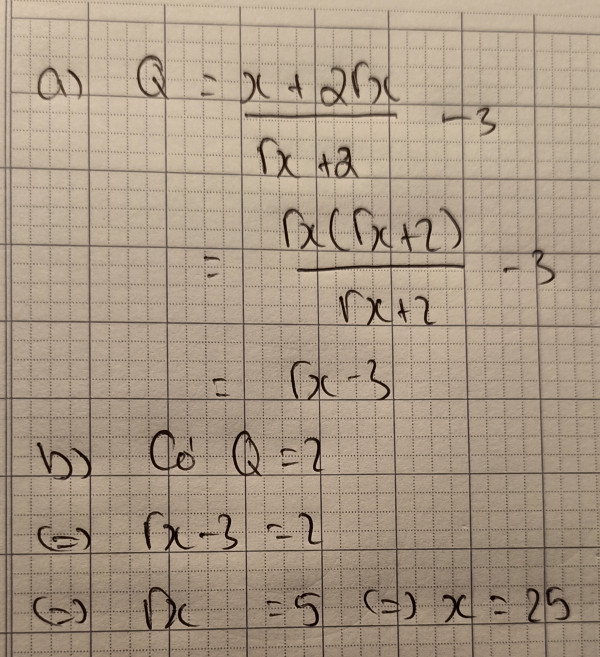 a) Q = (x + 2√x)/(√x + 2) - 3
= (√x(√x + 2))/(√x + 2) - 3
= √x - 3
b) Có Q = 2
(=) √x - 3 = 2
(=) √x = 5 (=) x = 25